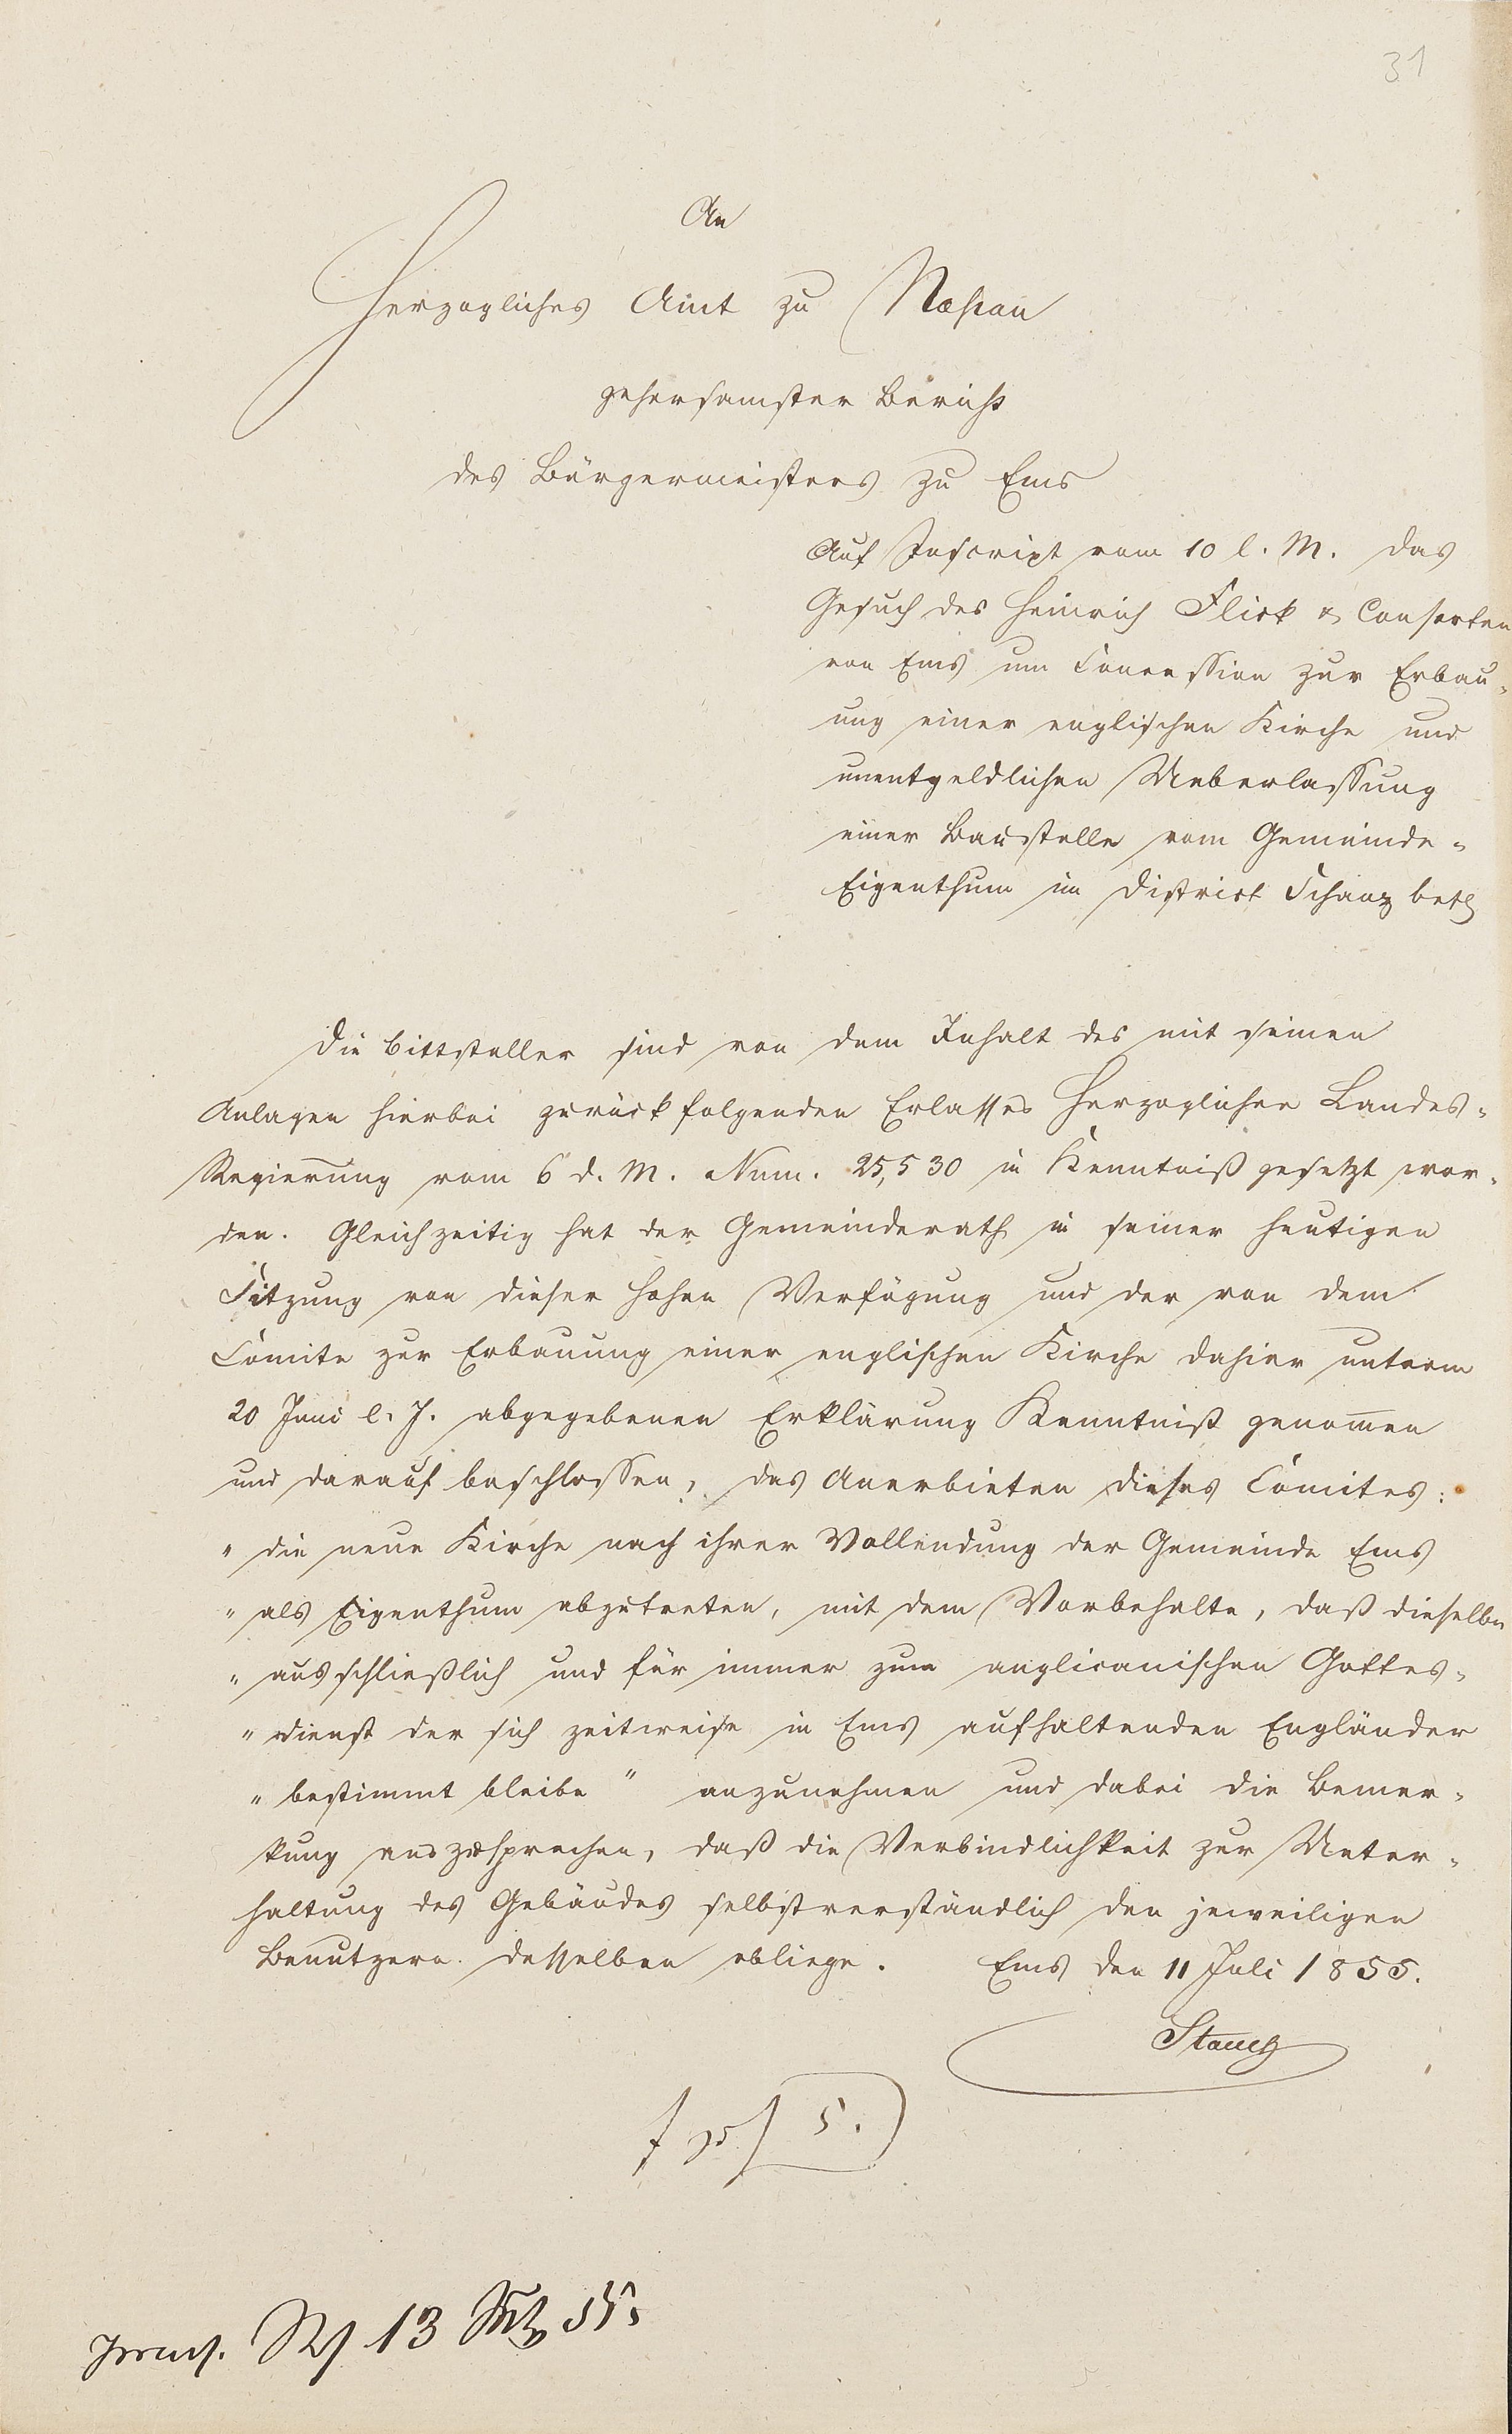 31
An
Herzogliches Amt zu Nassau
gehorsamster Bericht
des Bürgermeisters zu Ems
Auf Inscript vom 10 l. M. das
Gesuch des Heinrich Flick & Consorten
von Ems um Concession zur Erbau-
ung einer englischen Kirche und
unentgeldlichen Ueberlassung
einer Baustelle vom Gemeinde-
Eigenthum im District Schanz betr
Die Bittsteller sind von dem Inhalt des mit seinen
Anlagen hierbei zurückfolgenden Erlasses Herzoglicher Landes-
Regierung vom 6 d. M. Num. 25,530 in Kenntniß gesetzt wor-
den. Gleichzeitig hat der Gemeinderath in seiner heutigen
Sitzung von dieser hohen Verfügung und der von dem
Comite zur Erbauung einer englischen Kirche dahier unterm
20 Juni l. J. abgegebenen Erklärung Kenntniß genom̅en
und darauf beschlossen, das Anerbieten dieses Comites:
" die neue Kirche nach ihrer Vollendung der Gemeinde Ems
" als Eigenthum abzutreten, mit dem Vorbehalte, daß dieselbe
" ausschließlich und für immer zum anglicanischen Gottes-
" dienst der sich zeitweise in Ems aufhaltenden Engländer
" bestimmt bleibe " anzunehmen und dabei die Bemer-
kung auszusprechen, daß die Verbindlichkeit zur Unter-
haltung des Gebäudes selbstverständlich den jeweiligen
Benutzern desselben obliege. Ems den 11 Juli 1855.
Stauch
5.
praes. 13 55.